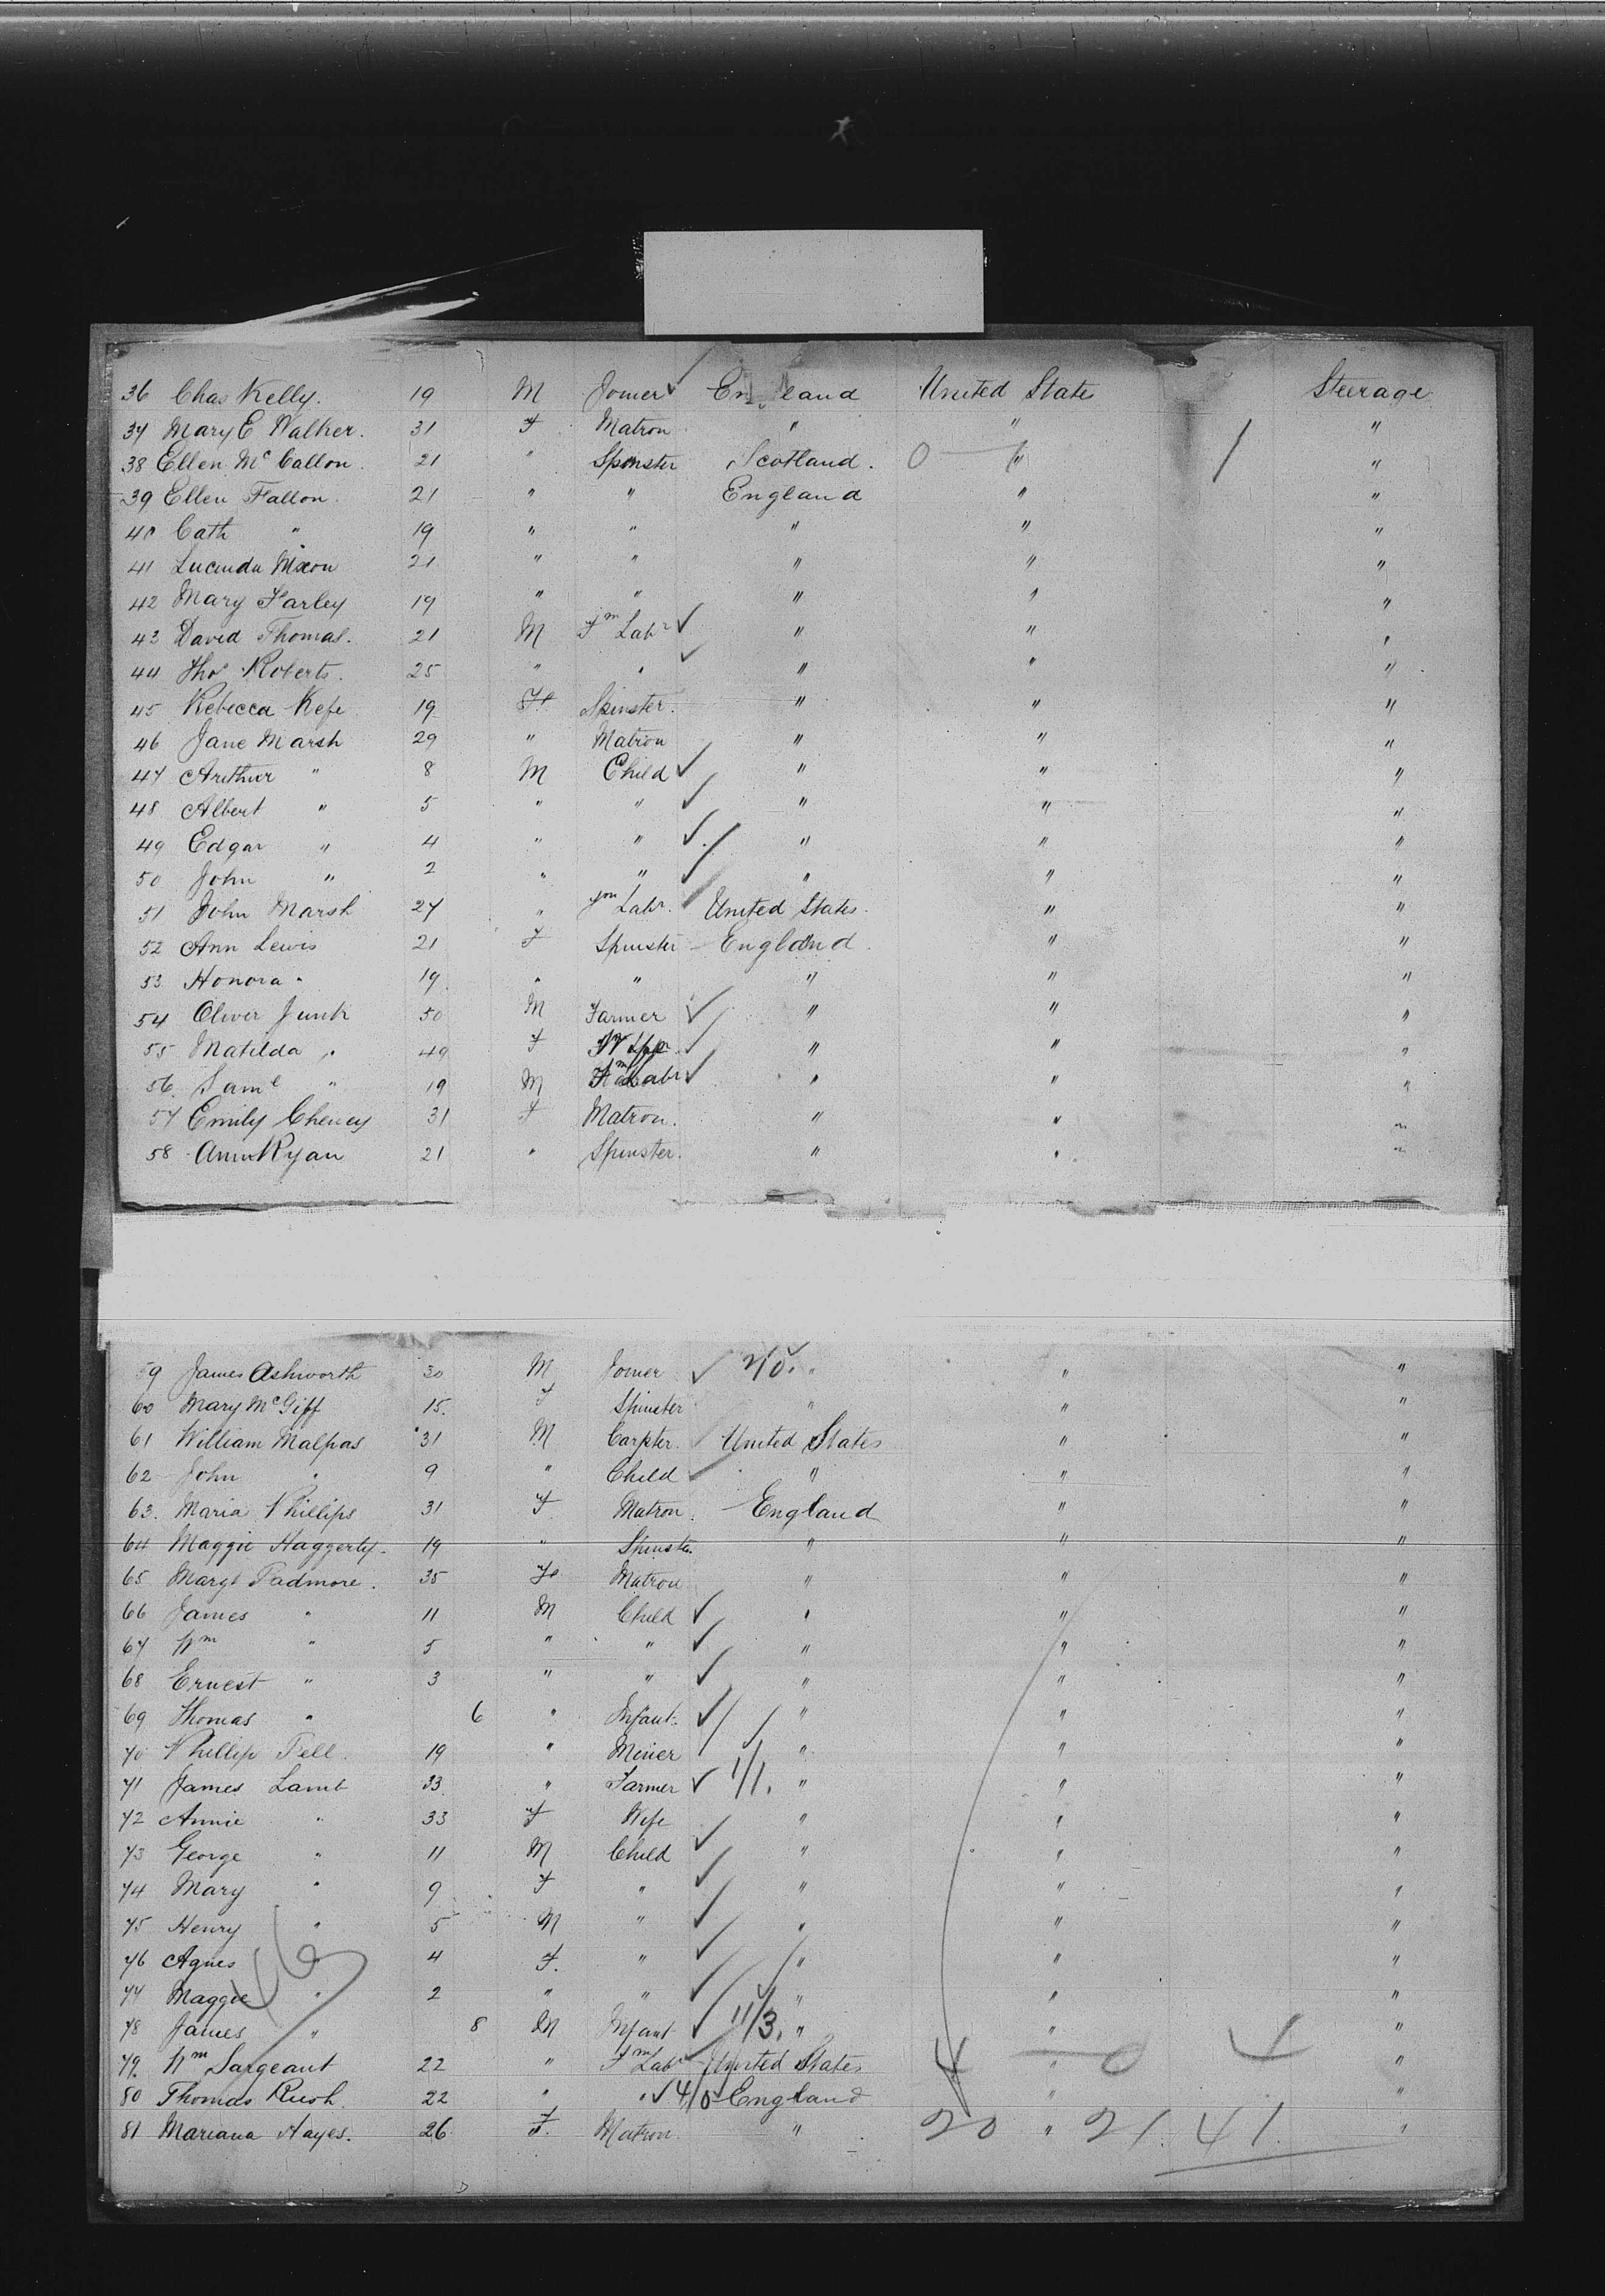 36 Chas Kelly. 19 M Joiner England United States Steerage
37 Mary E Walker. 31 F Matron " " "
38 Ellen McCallon 21 " Spinster Scotland. 0 1 " 1 "
39 Ellen Fallon 21 " " England " "
40 Cath " 19 " " " " "
41 Lucinda Nixon 21 " " " " "
42 Mary Farley 19 " " " " "
43 David Thomas. 21 M Fm Labr " " "
44 Thos Roberts. 25 " " " " "
45 Rebecca Kefe 19 Fe Spinster. " " "
46 Jane Marsh 29 " Matron " " "
47 Arethur " 8 M Child " " "
48 Albert " 5 " " " " "
49 Edgar " 4 " " " " "
50 John " 2 " " " " "
51 John Marsh 27 " Fm Labr. United States. " "
52 Ann Lewis 21 F Spinster England. " "
53 Honora " 19 " " " " "
54 Oliver 50 M Farmer " " "
55 Matilda " 49 F " " "
56. Saml " 19 M Fm Labr " " "
57 Emily Cheney 31 F Matron. " " "
58 Ann Ryan 21 " Spinster. " " "
59 James Ashworth 30 M Joiner 2/0. " " "
60 Mary McGiff 15. F Spinster " " "
61 William Malpas 31 M Carpter. United States " "
62 John " 9 " Child " " "
63. Maria Phillips 31 F Matron. England " "
64 Maggie Haggerty. 19 " Spinstr. " " "
65 Margt Padmore. 35 Fe Matron " " "
66 James " 11 M Child " " "
67 Wm " 5 " " " " "
68 Ernest " 3 " " " " "
69 Thomas " 6 " Infant. " " "
70 Phillip Fell. 19 " Miner " " "
71 James Lamb 33. " Farmer 1/1. " " "
72 Annie " 33 F Wife " " "
73 George " 11 M Child " " "
74 Mary " 9 F " " " "
75 Henry " 5 M " " " "
76 Agnes " 4 F. " " " "
77 Maggie " 2 " " " " "
78 James " 8 M Infant 11/3. " " "
79. Wm Sargeant 22 " Fm Labr United States 4 " 0 4 "
80 Thomas Rush. 22 " " 4/0 England " "
81 Mariana Hayes. 26 F. Matron. " 20 " 21. 41. "